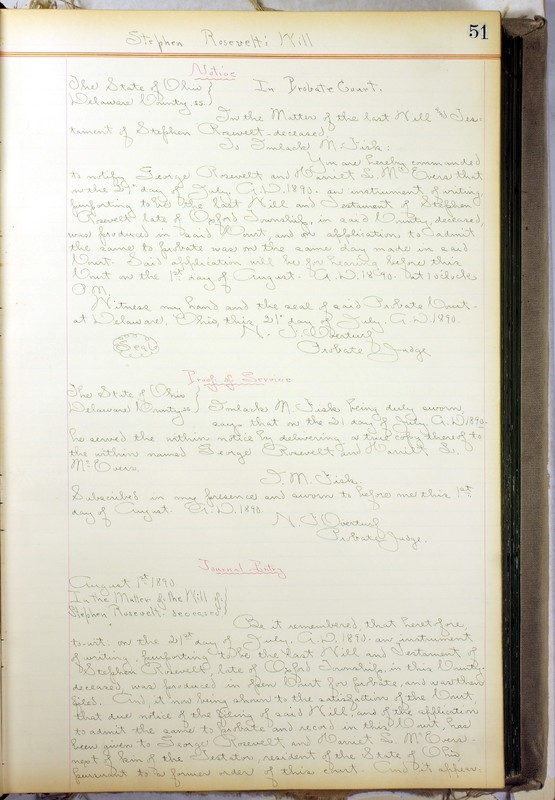 51
Stephen Rosevelt's Will
Notice
The State of Ohio } In Probate Court.
Delaware County ss }
In the Matter of the last Will & Tes-
tament of Stephen Rosevelt - deceased.
To Imlack M. Fisk:
You are hereby commanded
to notify George Rosevelt and Harriet S. McEvers that
on the 21st day of July A.D. 1890. an instrument of writing,
purporting to be the last Will and Testament of Stephen
Rosevelt late of Oxford Township, in said County, deceased,
was produced in said Court, and an application to admit
the same to probate was on the same day made in said
Court. Said application will be for hearing before this
Court on the 1st day of August - A.D. 1890. at 1 o'clock
P.M.
Witness my hand and the seal of said Probate Court -
at Delaware, Ohio, this 21st day of July. A.D. 1890.
N. F. Overturf
(Seal) Probate Judge
Proof of Service
The State of Ohio }
Delaware County ss } Imlack M. Fisk being duly sworn,
says that on the 21 day of July A.D. 1890.
he served the within notice by delivering a true copy thereof to
the within named George Rosevelt and Harriet S.
McEvers.
I. M. Fisk.
Subscribed in my presence and sworn to before me this 1st
day of August. A.D. 1890.
N. F. Overturf
Probate Judge.
Journal Entry
August 1st 1890.
In the Matter of the Will of }
Stephen Rosevelt deceased }
Be it remembered, that heretofore,
to-wit: on the 21st day of July. A.D. 1890. an instrument
of writing, purporting to be the Last Will and Testament of
Stephen Rosevelt, late of Oxford Township, in this County,
deceased, was produced in open Court for probate, and was then
filed. And, it now being shown to the satisfaction of the Court,
that due notice of the filing of said Will, and of the application
to admit the same to probate and record in this Court, has
been given to George Rosevelt and Harriet S. McEvers -
next of kin of the Testator, resident of the State of Ohio
pursuant to a former order of this court. And it appear-